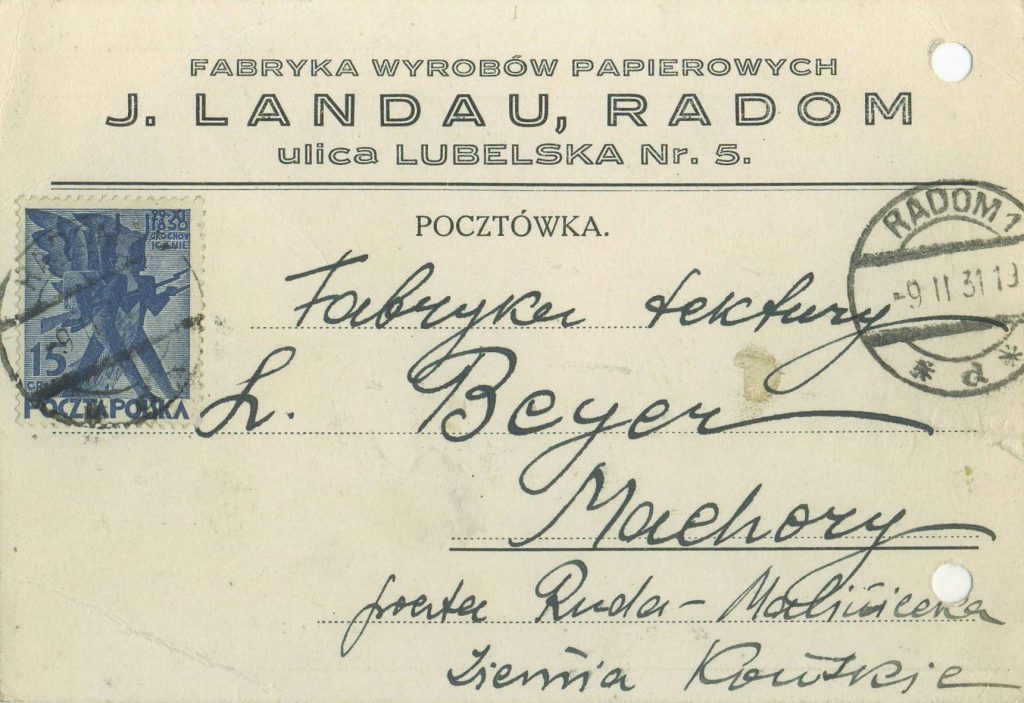 FABRYKA WYROBÓW PAPIEROWYCH
J. LANDAU, RADOM
ulica LUBELSKA Nr. 5.
POCZTÓWKA.
15
POCZTA POLSKA
RADOM 1
-9 II 31 19
* a *
Fabryka tektury
L. Beyer
Machory
poczta Ruda-Maleniecka
ziemia Konskie